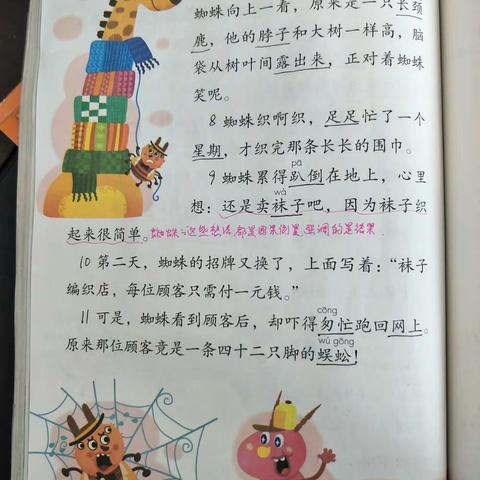 蜘蛛向上一看，原来是一只长颈
鹿，他的脖子和大树一样高，脑
袋从树叶间露出来，正对着蜘蛛
笑呢。
8 蜘蛛织啊织，足足忙了一个
星期，才织完那条长长的围巾。
pā
9 蜘蛛累得趴倒在地上，心里
wà
想：还是卖袜子吧，因为袜子织
起来很简单。蜘蛛这些想法都是因果倒置，强调的是结果。
10 第二天，蜘蛛的招牌又换了，上面写着：“袜子
编织店，每位顾客只需付一元钱。”
cōng
11 可是，蜘蛛看到顾客后，却吓得匆忙跑回网上。
wú gōng
原来那位顾客竟是一条四十二只脚的蜈蚣！